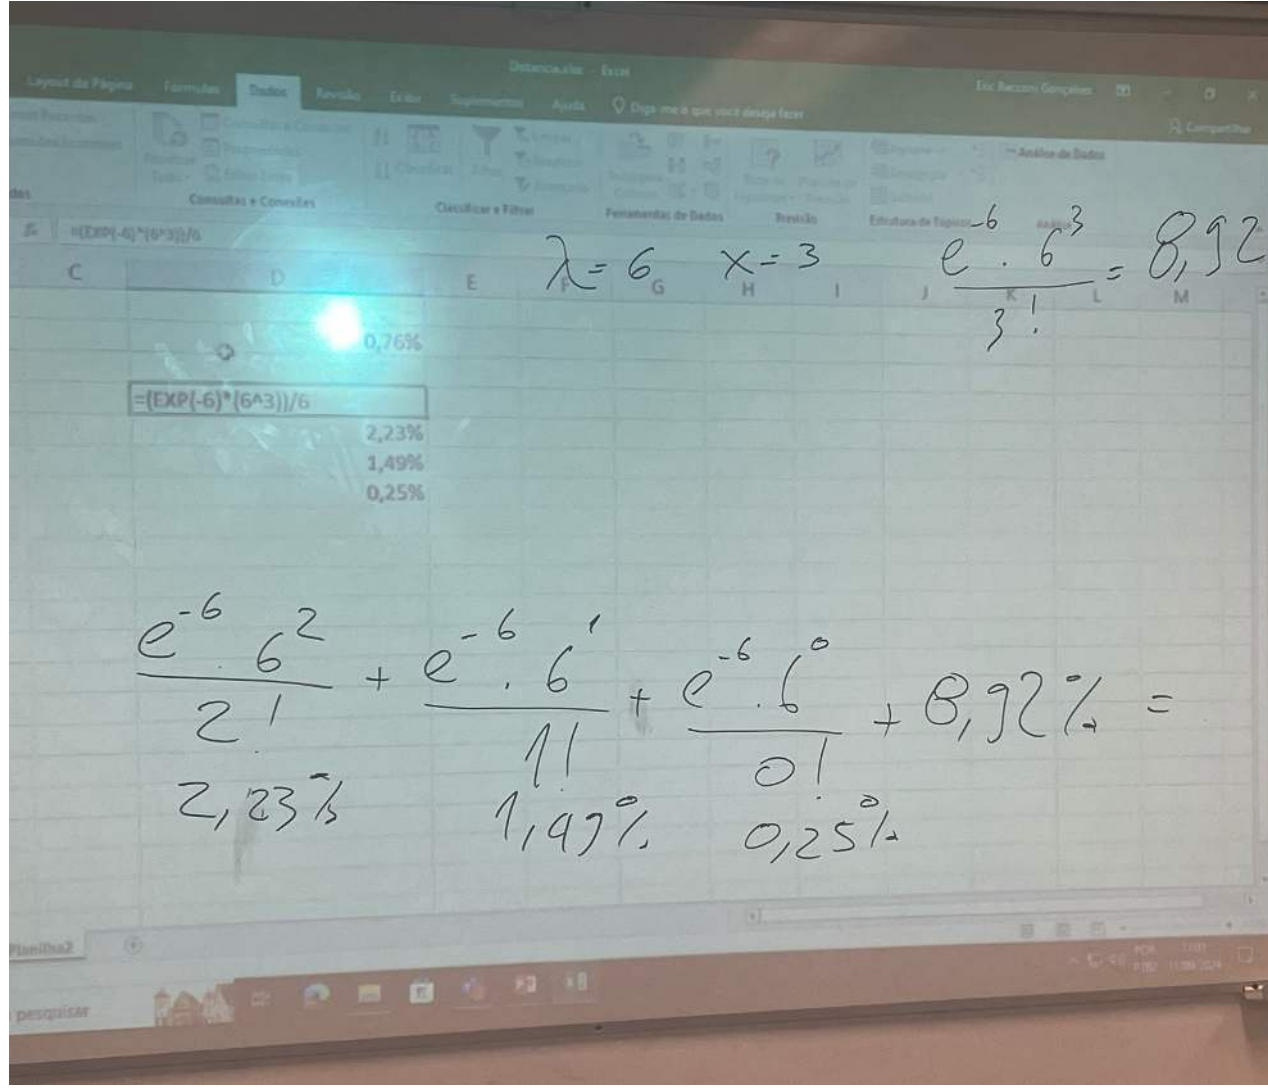 Distancia.xlsx - Excel
Eric Bacconi Gonçalves
Layout da Página Fórmulas Dados Revisão Exibir Suplementos Ajuda Diga-me o que você deseja fazer
Compartilhar
Classificar Análise de Dados
Consultas e Conexões Classificar e Filtrar Ferramentas de Dados Previsão Estrutura de Tópicos
=(EXP(-6)*(6^3))/6
λ = 6 x = 3 e^-6 . 6^3 / 3! = 8,92
C D E F G H I J K L M
0,76%
=(EXP(-6)*(6^3))/6
2,23%
1,49%
0,25%
e^-6 . 6^2 / 2! + e^-6 . 6^1 / 1! + e^-6 . 6^0 / 0! + 8,92% =
2,23% 1,49% 0,25%
Planilha2
POR
pesquisar